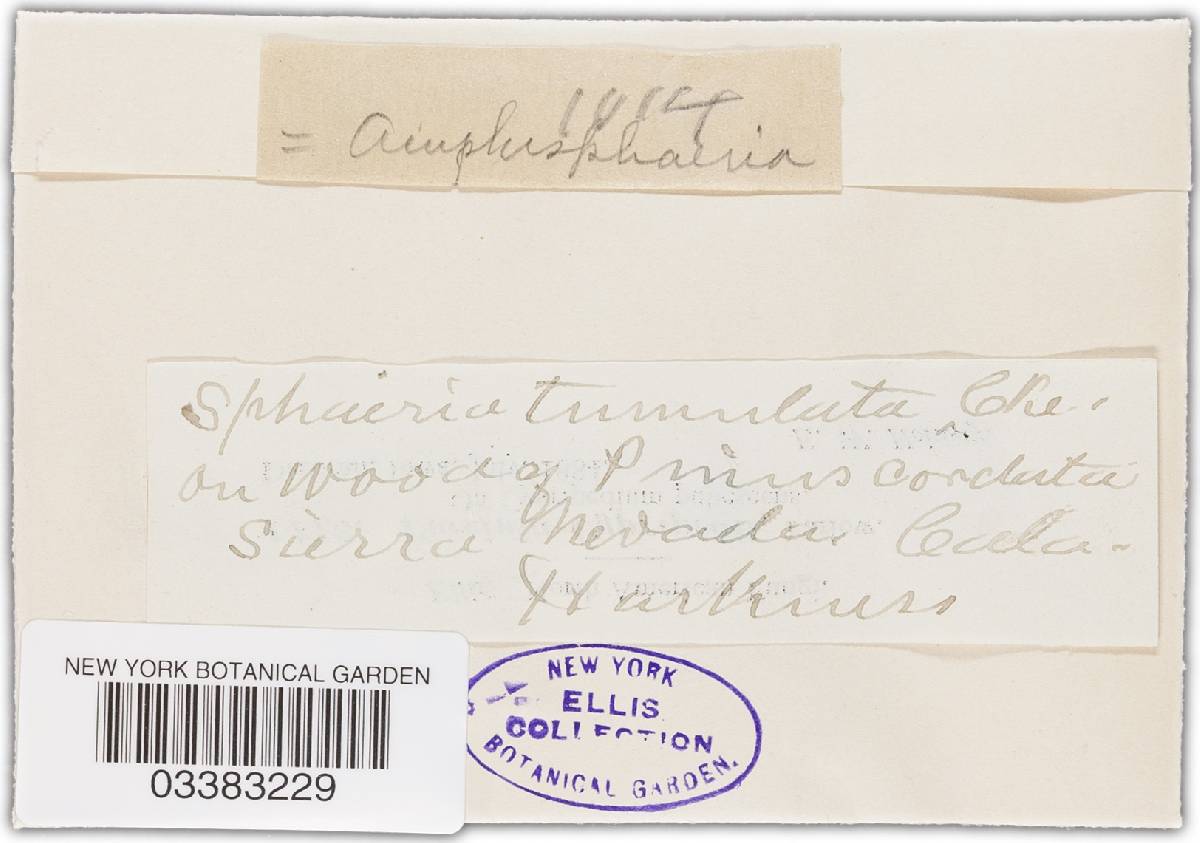 1014
= Amphisphaeria
Sphaeria tumulata Cke.
on wood of Pinus cordata
Sierra Nevada. Cala.
Harkness
NEW YORK BOTANICAL GARDEN
03383229
NEW YORK
ELLIS
COLLECTION
BOTANICAL GARDEN.